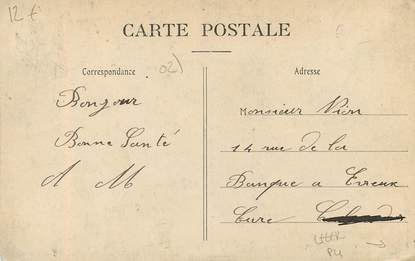 12 €
CARTE POSTALE
Correspondance
02)
Adresse
Bonjour
Bonne Santé
A M
Monsieur Vion
14 rue de la
Banque a Evreux
Eure